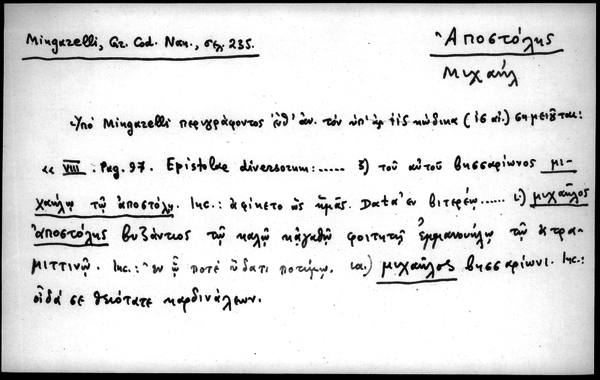 Mingarelli, Gr. Cod. Nan., σελ. 235.
Ἀποστόλης
Μιχαήλ
Ὑπὸ Mingarelli περιγράφοντος ἐνθ' ἀν. τὸν ὑπ' ἀρ. κώδικα (ις αἰ.) σημειοῦται:
« VIII : Pag. 97. Epistolae diversorum: ..... 3) τοῦ αὐτοῦ βησσαρίωνος μι-
χαήλῳ τῷ ἀποστόλῃ. Inc.: ἀφίκετο ὡς ἡμᾶς. Data ἐν βιτερέῳ ...... ι.) μιχαῆλος
ἀποστόλης βυζάντιος τῷ καλῷ κἀγαθῷ φοιτητῇ ἐμμανουήλῳ τῷ ἀτρα-
μιττινῷ. Inc.: ἐν ᾧ ποτὲ ὕδατι ποτίμῳ. ια.) μιχαῆλος βησσαρίωνι. Inc.:
οἶδά σε θειότατε καρδινάλεων.